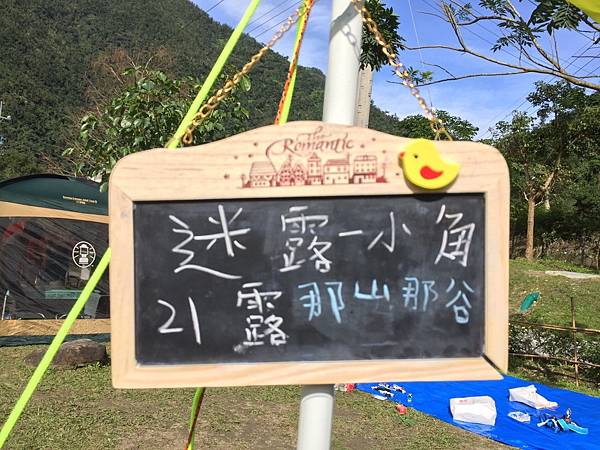 Romantic
迷露一小角
21露 那山那谷